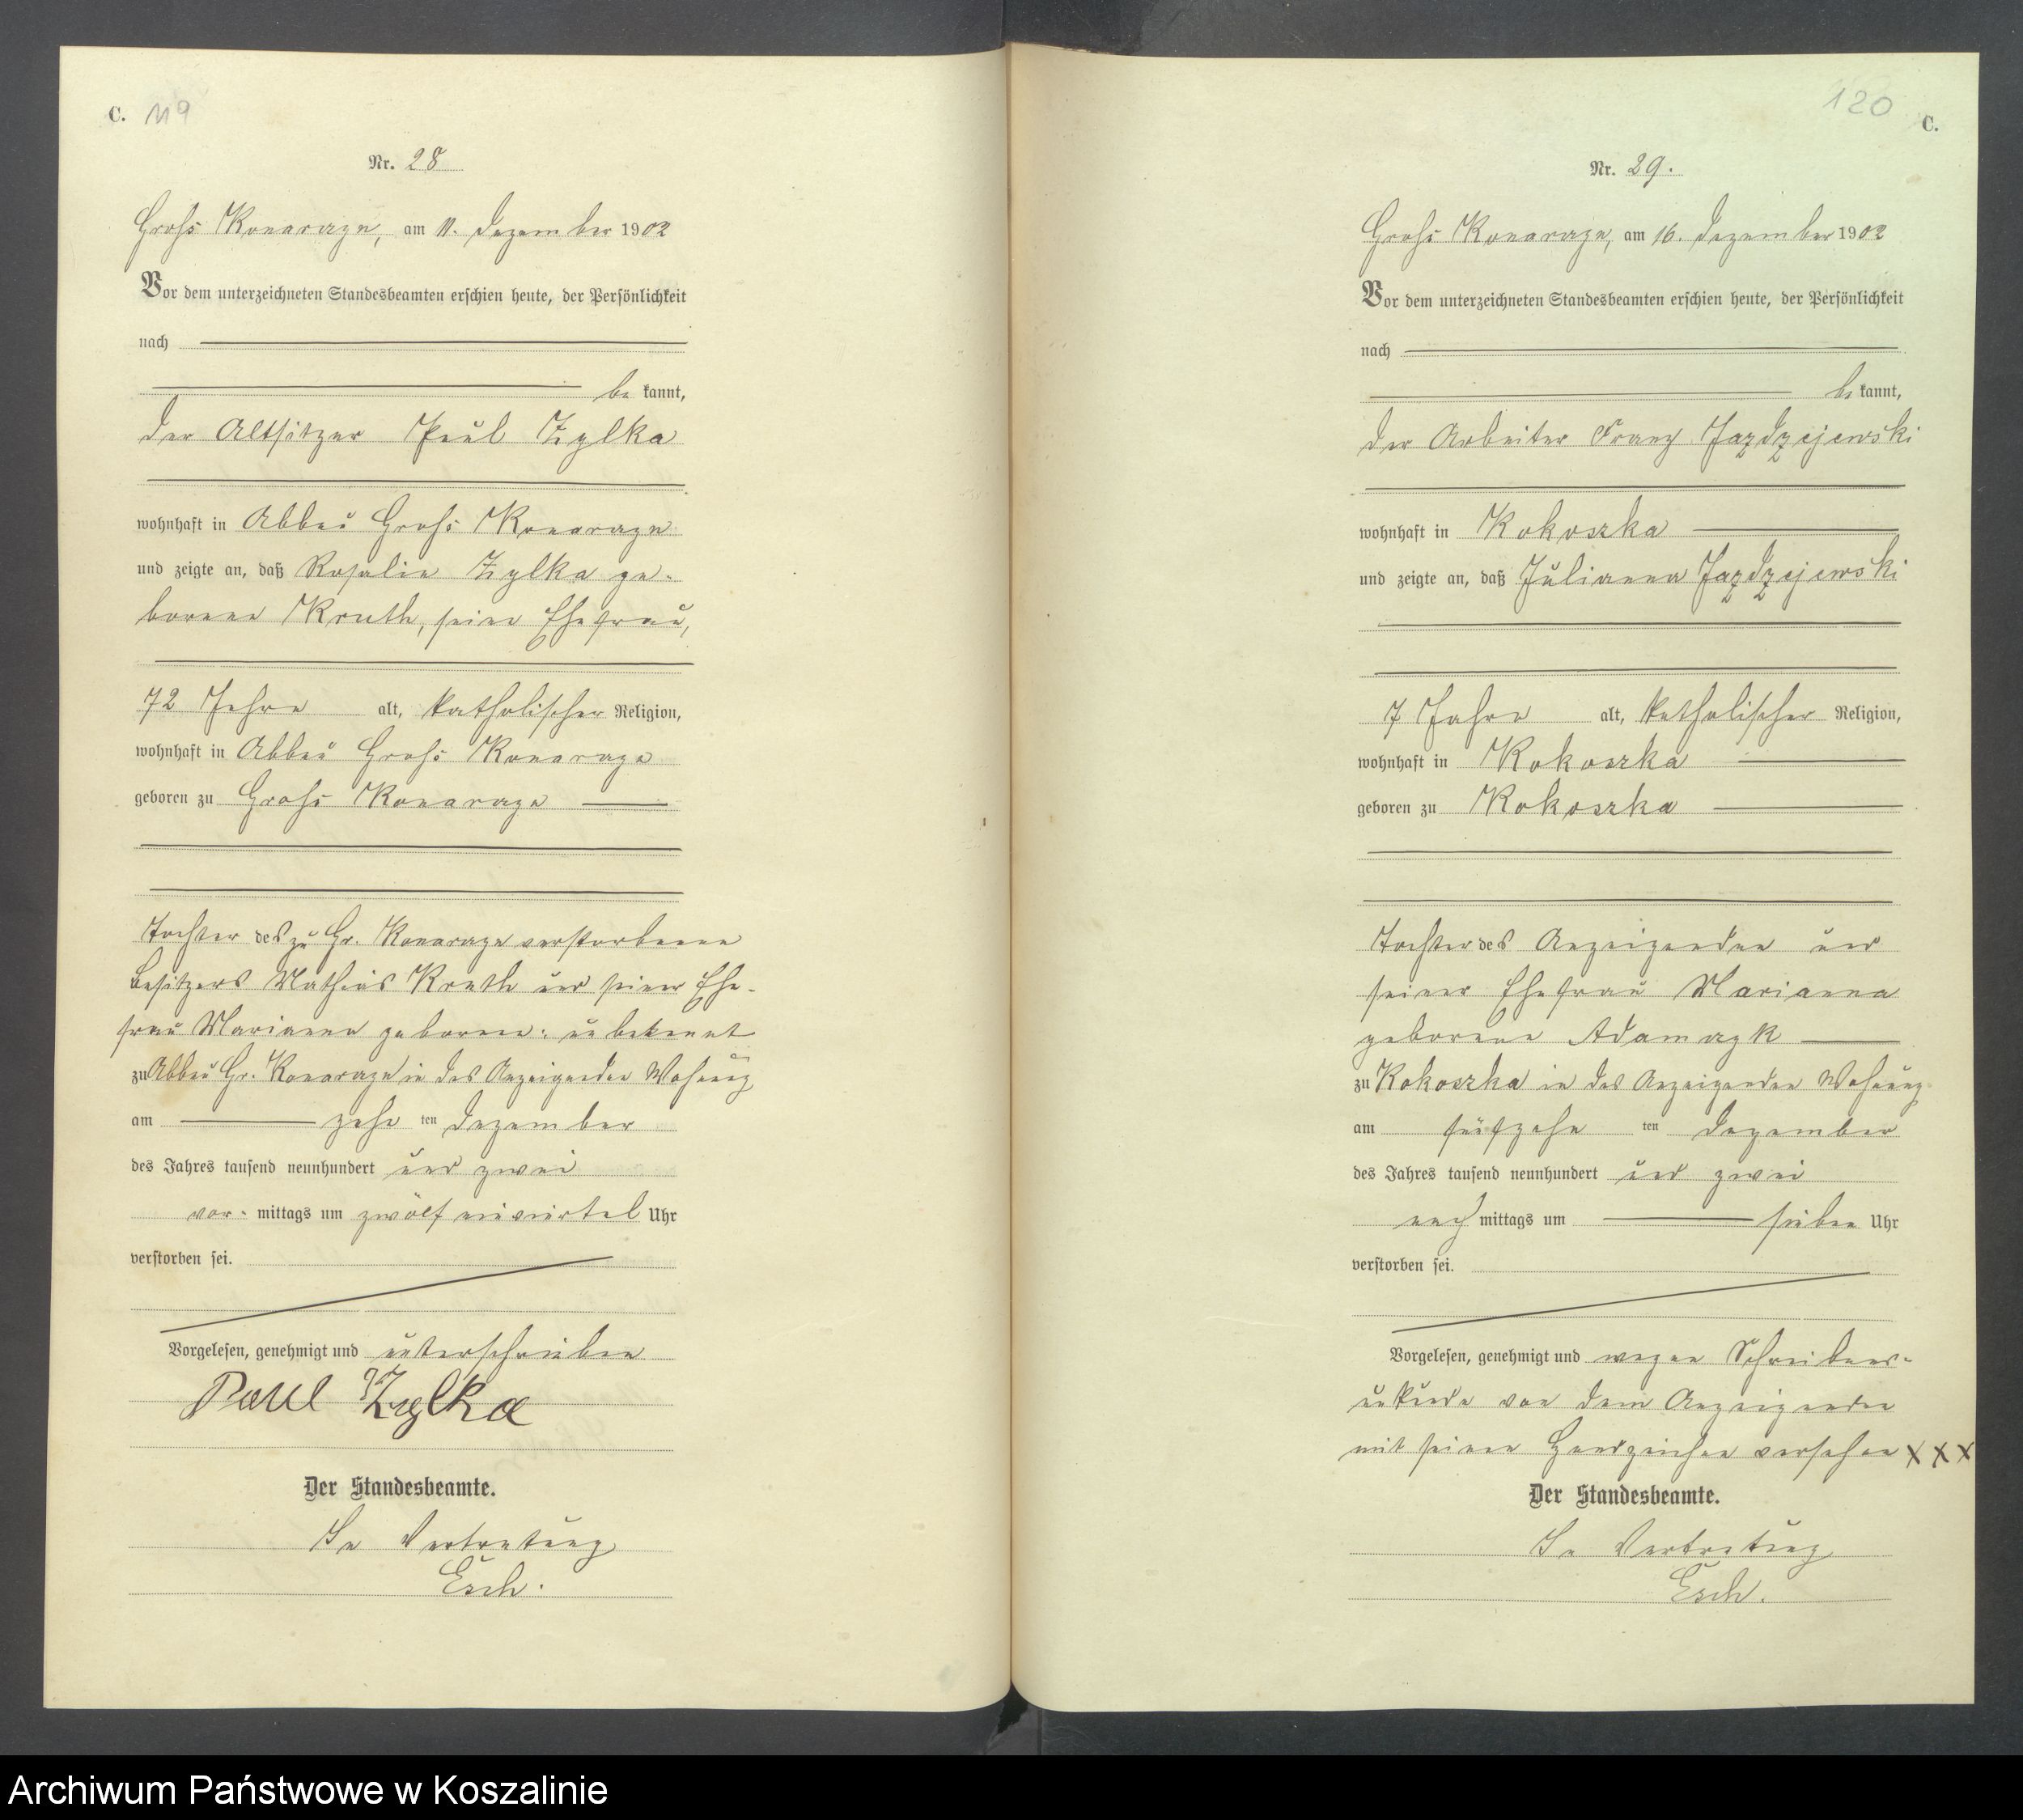 C. 119
Nr. 28
Groß Konarzyn, am 11. Dezember 1902
Vor dem unterzeichneten Standesbeamten erschien heute, der Persönlichkeit
nach
be kannt,
der Altsitzer Paul Zylka
wohnhaft in Abbau Groß Konarzyn
und zeigte an, daß Rosalie Zylka ge-
borene Kruth, seine Ehefrau,
72 Jahre alt, katholischer Religion,
wohnhaft in Abbau Groß Konarzyn
geboren zu Groß Konarzyn
Tochter des zu Gr. Konarzyn verstorbenen
Besitzers Mathias Kruth und seiner Ehe-
frau Marianna geborene: unbekannt
zu Abbau Gr. Konarzyn in des Anzeigenden Wohnung
am zehn ten Dezember
des Jahres tausend neunhundert und zwei
vor- mittags um zwölf einviertel Uhr
verstorben sei.
Vorgelesen, genehmigt und unterschrieben
Paul Zylka
Der Standesbeamte.
In Vertretung
Esch.
120
C.
Nr. 29.
Groß Konarzyn, am 16. Dezember 1902
Vor dem unterzeichneten Standesbeamten erschien heute, der Persönlichkeit
nach
be kannt,
der Arbeiter Franz Jazdzejewski
wohnhaft in Kokoszka
und zeigte an, daß Julianna Jazdzejewski
7 Jahre alt, katholischer Religion,
wohnhaft in Kokoszka
geboren zu Kokoszka
Tochter des Anzeigenden und
seiner Ehefrau Marianna
geborene Adamczyk
zu Kokoszka in des Anzeigenden Wohnung
am fünfzehn ten Dezember
des Jahres tausend neunhundert und zwei
nach mittags um sieben Uhr
verstorben sei.
Vorgelesen, genehmigt und wegen Schreibens-
unkunde von dem Anzeigenden
mit seinen Handzeichen versehen XXX
Der Standesbeamte.
In Vertretung
Esch.
Archiwum Państwowe w Koszalinie